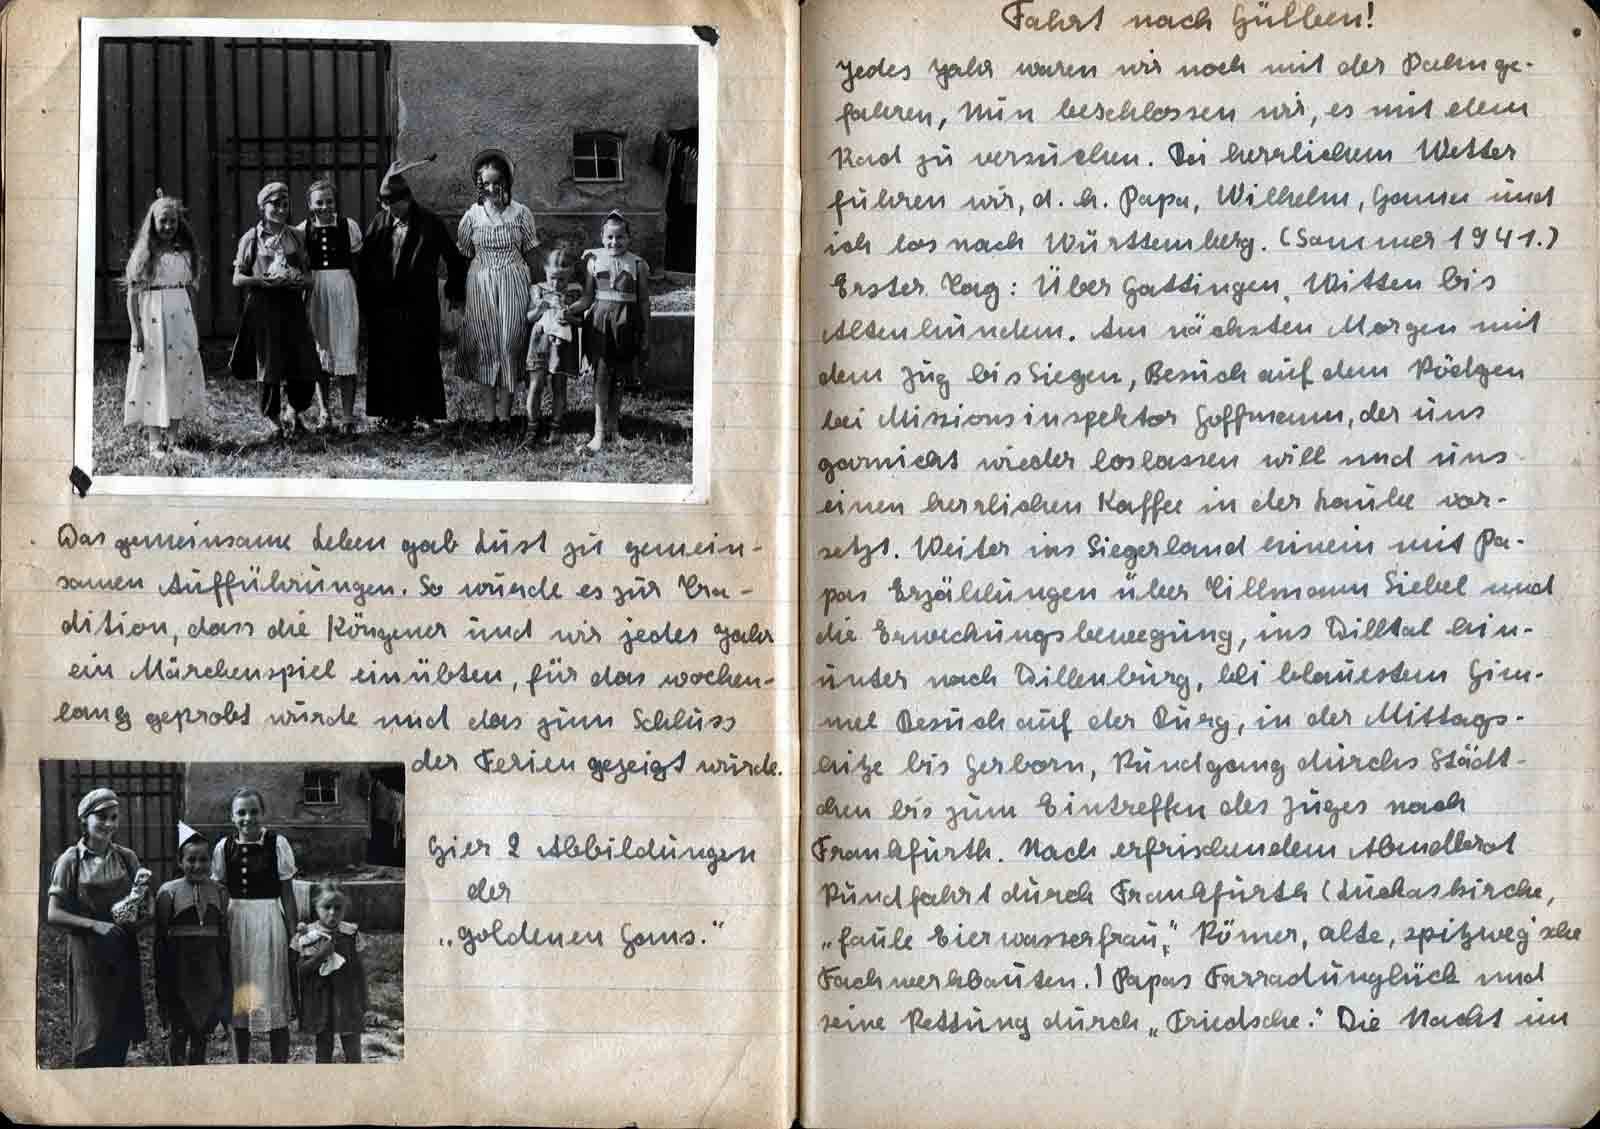 Das gemeinsame Leben gab Lust zu gemein-
samen Aufführungen. So wurde es zur Tra-
dition, dass die Köngener und wir jedes Jahr
ein Märchenspiel einübten, für das wochen-
lang geprobt wurde und das zum Schluss
der Ferien gezeigt wurde.
Hier 2 Abbildungen
der
„goldenen Gans."
Fahrt nach Hülben!
Jedes Jahr waren wir noch mit der Bahn ge-
fahren, Nun beschlossen wir, es mit dem
Rad zu versuchen. Bei herrlichem Wetter
fuhren wir, d. h. Papa, Wilhelm, Hanna und
ich los nach Württemberg. (Sommer 1941.)
Erster Tag: Über Hattingen, Witten bis
Altenhundem. Am nächsten Morgen mit
dem Zug bis Siegen, Besuch auf dem Rödgen
bei Missionsinspektor Hoffmann, der uns
garnicht wieder loslassen will und uns
einen herrlichen Kaffee in der Laube vor-
setzt. Weiter ins Siegerland hinein mit Pa-
pas Erzählungen über Tillmann Siebel und
die Erweckungsbewegung, ins Dilltal hin-
unter nach Dillenburg, bei blauestem Him-
mel Besuch auf der Burg, in der Mittags-
hitze bis Herborn, Rundgang durchs Städt-
chen bis zum Eintreffen des Zuges nach
Frankfurth. Nach erfrischendem Abendbrot
Rundfahrt durch Frankfurth (Luckaskirche,
„faule Eierwasserfrau," Römer, alte, spitzweg'sche
Fachwerkbauten.) Papas Farradunglück und
seine Rettung durch „Friedsche." Die Nacht im